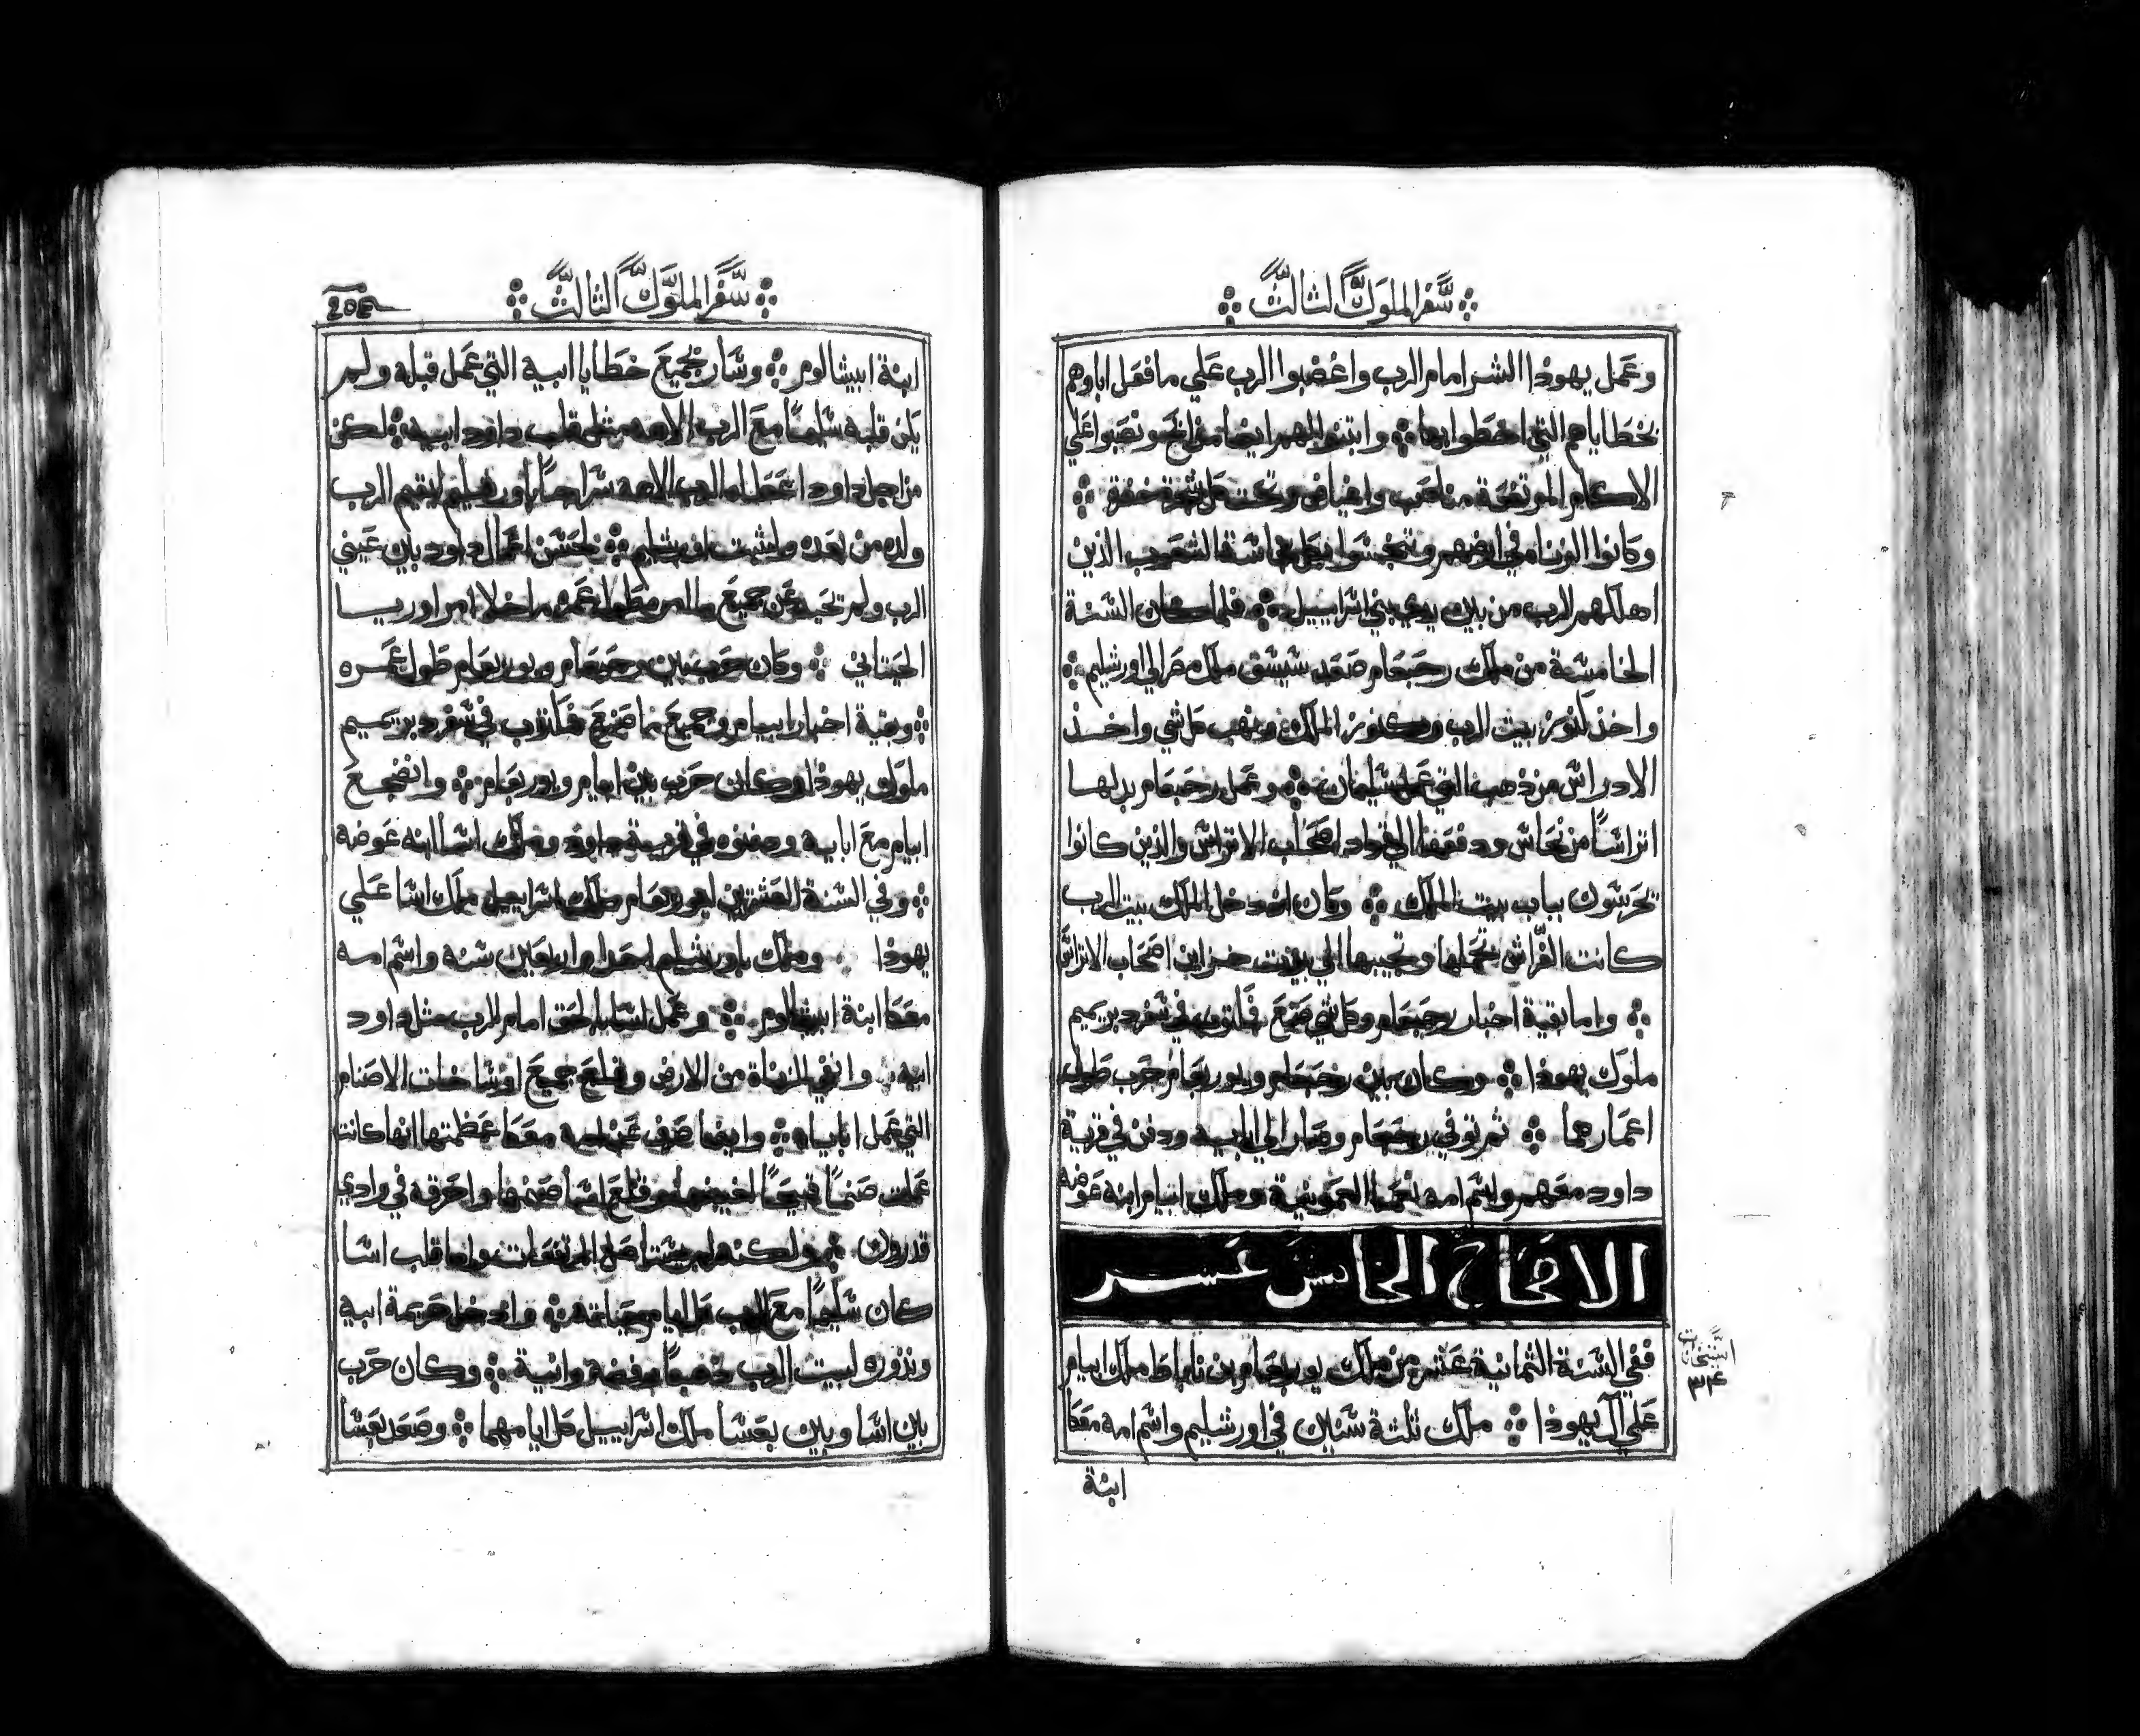 سفر الملوك الثالث
وعمل يهوذا الشر امام الرب واغضبوا الرب علي ما فعل اباوهم
بخطاياهم التي اخطوا بها وابتنوا لهم ايضا ونصبوا علي
الاكام المرتفعة مناصب وتحت كل شجرة
وكانوا الزناه في ارضهم الشعوب الذين
اهلكهم الرب من بين يدي بني اسراييل فلما كان السنة
الخامسة من ملك رحبعام صعد شيشق ملك مصر الي اورشليم
واخذ كنوز بيت الرب وكنوز الملك ونهب كل شي واخذ
الادراس من ذهب التي عمل سليمان وعمل رحبعام بدلها
اتراسا من نحاس ودفعها الي قواد اصحاب الاتراس والذين كانوا
يحرسون بباب بيت الملك وكان اذ دخل الملك بيت الرب
كانت الفراس تحملها وتجيبها الي بيت خزاين اصحاب الاتراس
واما بقية اخبار رحبعام وكل شي صنع في سفر دبريميم
ملوك يهوذا وكان بين رحبعام ويوربعام حرب طول
اعمارهما ثم توفي رحبعام وصار الي ابايه ودفن في قرية
داود معهم واسم امه نعما العمونية وملك ابيام ابنه عوضه
الاصحاح الخامس عشر
ففي السنة الثمانية عشره من ملك يوربعام بن ناباط ملك ابيام
علي آل يهوذا ملك ثلثة سنين في اورشليم واسم امه معكا
ابنة
٣٤
سفر الملوك الثالث
ابنة ابيشالوم وسار بجميع خطايا ابيه التي عمل قبله ولم
يكن قلبه سليما مع الرب الاهه مثل قلب داود ابيه لكن
من اجل داود اعطا له الرب الاهه سراجا في اورشليم ليقيم الرب
ولده من بعده اورشليم بحسن اعمال داود بين عيني
الرب ولم تحيد عن جميع طول عمره ما خلا امر اوريا
الحيتاني وكان حرب بين رحبعام ويوربعام طول عمره
وبقية اخبار ابيام وجميع ما صنع في سفر دبريميم
ملوك يهوذا وكان حرب بين ابيام ويوربعام وانضجع
ابيام مع ابايه ودفنوه في قرية داود وملك اسا ابنه عوضه
وفي السنة العشرين ليوربعام ملك اسراييل ملك اسا علي
يهوذا وملك باورشليم احدا واربعين سنه واسم امه
معكا ابنة ابيشالوم وعمل اسا الحق امام الرب مثل داود
ابيه وانفي الزناة من الارض وقلع جميع اوساخات الاصنام
التي عمل اباياه وايضا صرف عن امه معكا عظمتها انها كانت
عملت صنما قبيحا وقلع اسا صنمها واحرقه في وادي
قدرون المرتفعات وانما قلب اسا
كان سليما مع الرب كل ايام حياته وادخل حريمة ابيه
ونزوره لبيت الرب ذهبا وفضه وانية وكان حرب
بين اسا وبين بعشا ملك اسراييل كل ايامهما وصعد بعشا